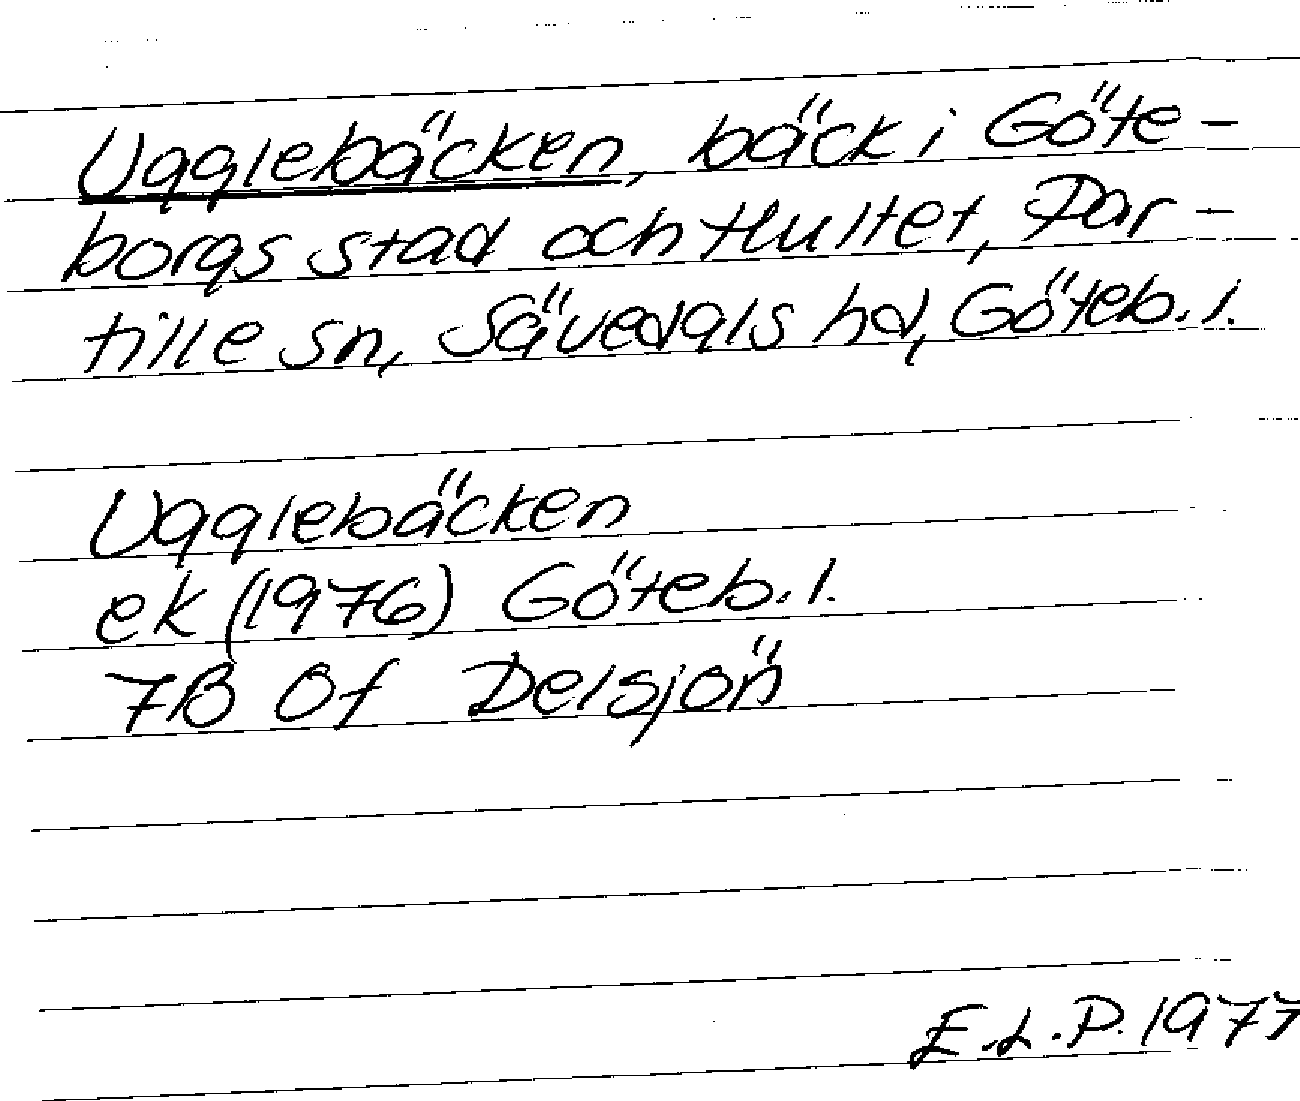 Ugglebäcken, bäck i Göte-
borgs stad och Hultet, Par-
tille sn, Sävedals hd, Göteb. l.
Ugglebäcken
ek (1976) Göteb. l.
7B 0f Delsjön
E.L.P. 1977